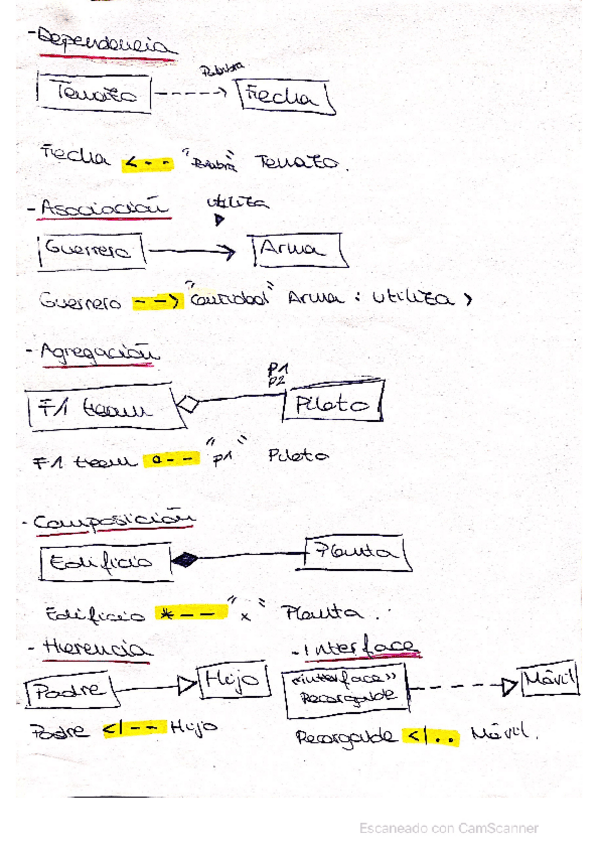 - Dependencia
Palabra
Tenato
Fecha
Fecha <-- "Palabra" Tenato.
- Asociación
utiliza
Guerrero
Arma
Guerrero --> "cantidad" Arma : utiliza >
- Agregación
P1
P2
F1 team
Piloto
F1 team o-- "p1" Piloto
- Composición
Edificio
Planta
Edificio *-- "x" Planta.
- Herencia
Padre
Hijo
Padre <|-- Hijo
- Interface
«interface»
Recargable
Móvil
Recargable <|.. Móvil.
Escaneado con CamScanner